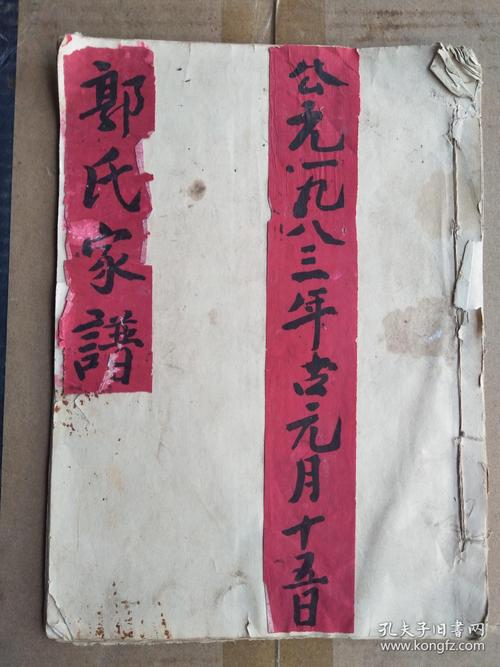 公元一九八三年古元月十五日
郭氏家譜
孔夫子旧书网
www.kongfz.com